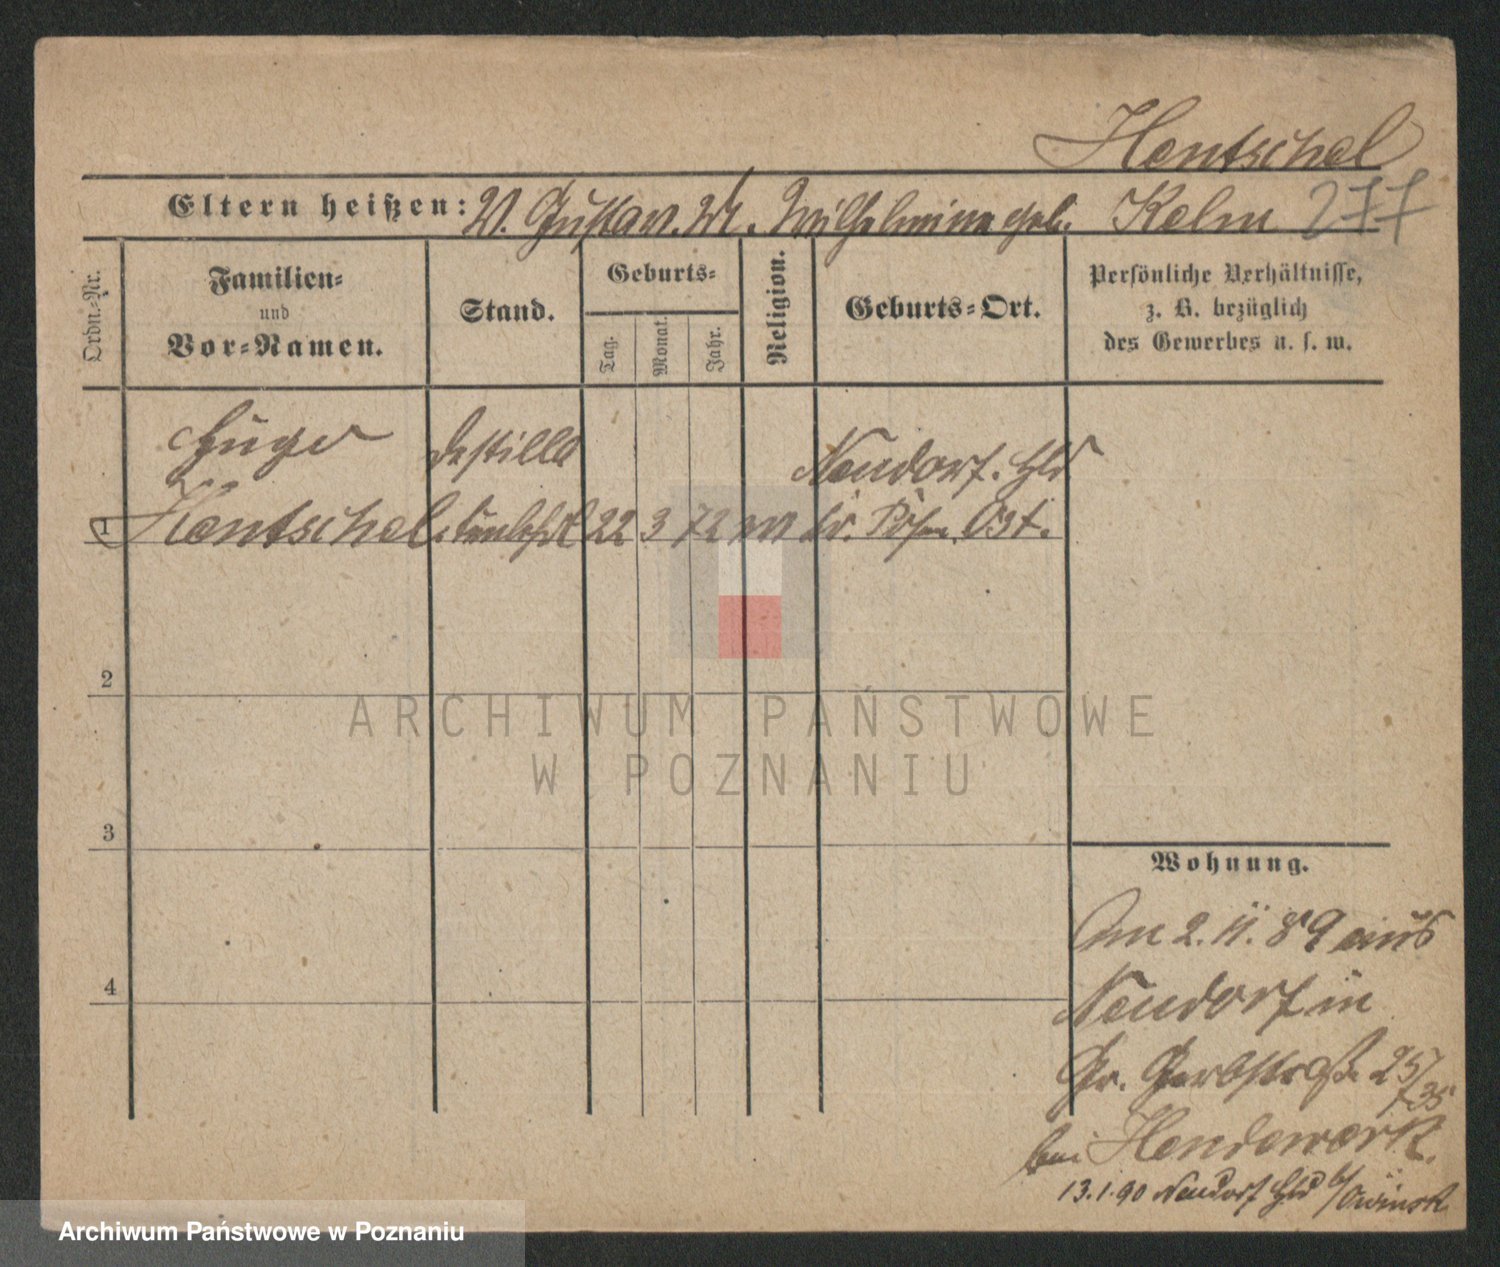 Hentschel
Eltern heißen: V. Gustav. M. Wilhelmine geb. Kelm 277
Ordn.-Nr.
Familien-
und
Vor-Namen.
Stand.
Geburts-
Tag.
Monat.
Jahr.
Religion.
Geburts-Ort.
Persönliche Verhältnisse,
z. B. bezüglich
des Gewerbes u. s. w.
Hugo Destilla Neudorf. Hld
1 Hentschel 22 3 72 Kr. Posen Ost.
2
3
4
ARCHIWUM PAŃSTWOWE
W POZNANIU
Wohnung.
Am 2. 11. 89 aus
Neudorf in
Gr. Gerbstraße 25/
735
bei Hendewerk.
13.1.90 Neudorf Hld b/Owinsk
Archiwum Państwowe w Poznaniu